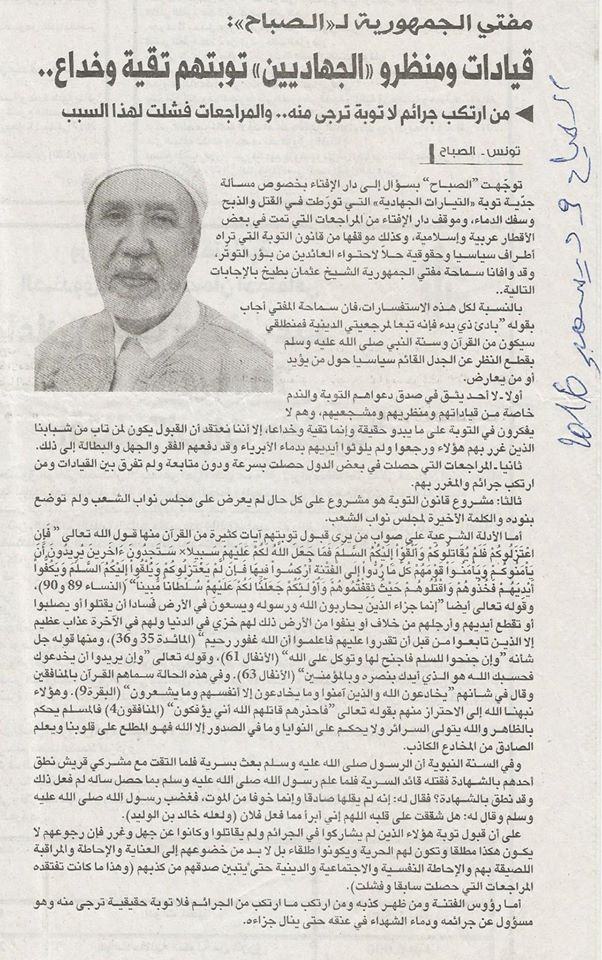 مفتي الجمهورية لـ«الصباح»:
قيادات ومنظرو «الجهاديين» توبتهم تقية وخداع..
◄ من ارتكب جرائم لا توبة ترجى منه.. والمراجعات فشلت لهذا السبب
تونس - الصباح
توجّهت "الصباح" بسؤال إلى دار الإفتاء بخصوص مسألة
جدّية توبة «التيارات الجهادية» التي تورّطت في القتل والذبح
وسفك الدماء، وموقف دار الإفتاء من المراجعات التي تمت في بعض
الأقطار عربية وإسلامية، وكذلك موقفها من قانون التوبة التي تراه
أطراف سياسيا وحقوقية حلاّ لاحتواء العائدين من بؤر التوتّر،
وقد وافانا سماحة مفتي الجمهورية الشيخ عثمان بطيخ بالإجابات
التالية..
بالنسبة لكل هذه الاستفسارات، فان سماحة المفتي أجاب
بقوله "بادئ ذي بدء فإنه تبعا لمرجعيتي الدينية فمنطلقي
سيكون من القرآن وسنة النبي صلى الله عليه وسلم
بقطع النظر عن الجدل القائم سياسيا حول من يؤيد
أو من يعارض.
أولا - لا أحد يثق في صدق دعواهم التوبة والندم
خاصة من قياداتهم ومنظريهم ومشجعيهم، وهم لا
يفكرون في التوبة على ما يبدو حقيقة وإنما تقية وخداعا، إلا أننا نعتقد أن القبول يكون لمن تاب من شبابنا
الذين غرر بهم هؤلاء ورجعوا ولم يلوثوا أيديهم بدماء الأبرياء وقد دفعهم الفقر والجهل والبطالة إلى ذلك.
ثانيا - المراجعات التي حصلت في بعض الدول حصلت بسرعة ودون متابعة ولم تفرق بين القيادات ومن
ارتكب جرائم والمغرر بهم.
ثالثا: مشروع قانون التوبة هو مشروع على كل حال لم يعرض على مجلس نواب الشعب ولم توضع
بنوده والكلمة الأخيرة لمجلس نواب الشعب.
أما الأدلة الشرعية على صواب من يرى قبول توبتهم آيات كثيرة من القرآن منها قول الله تعالى "فَإِن
اعْتَزَلُوكُمْ فَلَمْ يُقَاتِلُوكُمْ وَأَلْقَوْا إِلَيْكُمُ السَّلَمَ فَمَا جَعَلَ اللَّهُ لَكُمْ عَلَيْهِمْ سَبِيلًا× سَتَجِدُونَ ءَاخَرِينَ يُرِيدُونَ أَن
يَأْمَنُوكُمْ وَيَأْمَنُوا قَوْمَهُمْ كُلَّ مَا رُدُّوا إِلَى الْفِتْنَةِ أُرْكِسُوا فِيهَا فَإِن لَّمْ يَعْتَزِلُوكُمْ وَيُلْقُوا إِلَيْكُمُ السَّلَمَ وَيَكُفُّوا
أَيْدِيَهُمْ فَخُذُوهُمْ وَاقْتُلُوهُمْ حَيْثُ ثَقِفْتُمُوهُمْ وَأُوْلَئِكُمْ جَعَلْنَا لَكُمْ عَلَيْهِمْ سُلْطَانًا مُّبِينًا" (النساء 89 و90)،
وقوله تعالى أيضا "إنما جزاء الذين يحاربون الله ورسوله ويسعون في الأرض فسادا أن يقتلوا أو يصلبوا
أو تقطع أيديهم وأرجلهم من خلاف أو ينفوا من الأرض ذلك لهم خزي في الدنيا ولهم في الآخرة عذاب عظيم
إلا الذين تابعوا من قبل أن تقدروا عليهم فاعلموا أن الله غفور رحيم" (المائدة 35 و36)، ومنها قوله جل
شأنه "وإن جنحوا للسلم فاجنح لها وتوكل على الله" (الأنفال 61)، وقوله تعالى "وإن يريدوا أن يخدعوك
فحسبك الله هو الذي أيدك بنصره وبالمؤمنين" (الأنفال 63). وفي هذه الحالة سماهم القرآن بالمنافقين
وقال في شأنهم "يخادعون الله والذين آمنوا وما يخادعون إلا أنفسهم وما يشعرون" (البقرة 9)، وهؤلاء
نبهنا الله إلى الاحتراز منهم بقوله تعالى "فاحذرهم قاتلهم الله أنى يؤفكون" (المنافقون 4) فالمسلم يحكم
بالظاهر والله يتولى السرائر ولا يحكم على النوايا وما في الصدور إلا الله فهو المطلع على قلوبنا ويعلم
الصادق من المخادع الكاذب.
وفي السنة النبوية أن الرسول صلى الله عليه وسلم بعث بسرية فلما التقت مع مشركي قريش نطق
أحدهم بالشهادة فقتله قائد السرية فلما علم رسول الله صلى الله عليه وسلم بما حصل سأله لم فعل ذلك
وقد نطق بالشهادة؟ فقال له: إنه لم يقلها صادقا وإنما خوفا من الموت، فغضب رسول الله صلى الله عليه
وسلم وقال له: هل شققت على قلبه اللهم إني أبرأ مما فعل فلان (ولعله خالد بن الوليد).
على أن قبول توبة هؤلاء الذين لم يشاركوا في الجرائم ولم يقاتلوا وكانوا عن جهل وغرر فإن رجوعهم لا
يكون هكذا مطلقا وتكون لهم الحرية ويكونوا طلقاء بل لا بد من خضوعهم إلى العناية والإحاطة والمراقبة
اللصيقة بهم والإحاطة النفسية والاجتماعية والدينية حتى يتبين صدقهم من كذبهم (وهذا ما كانت تفتقده
المراجعات التي حصلت سابقا وفشلت).
أما رؤوس الفتنة ومن ظهر كذبه ومن ارتكب ما ارتكب من الجرائم فلا توبة حقيقية ترجى منه وهو
مسؤول عن جرائمه ودماء الشهداء في عنقه حتى ينال جزاءه.
الصباح 9 ديسمبر 2016